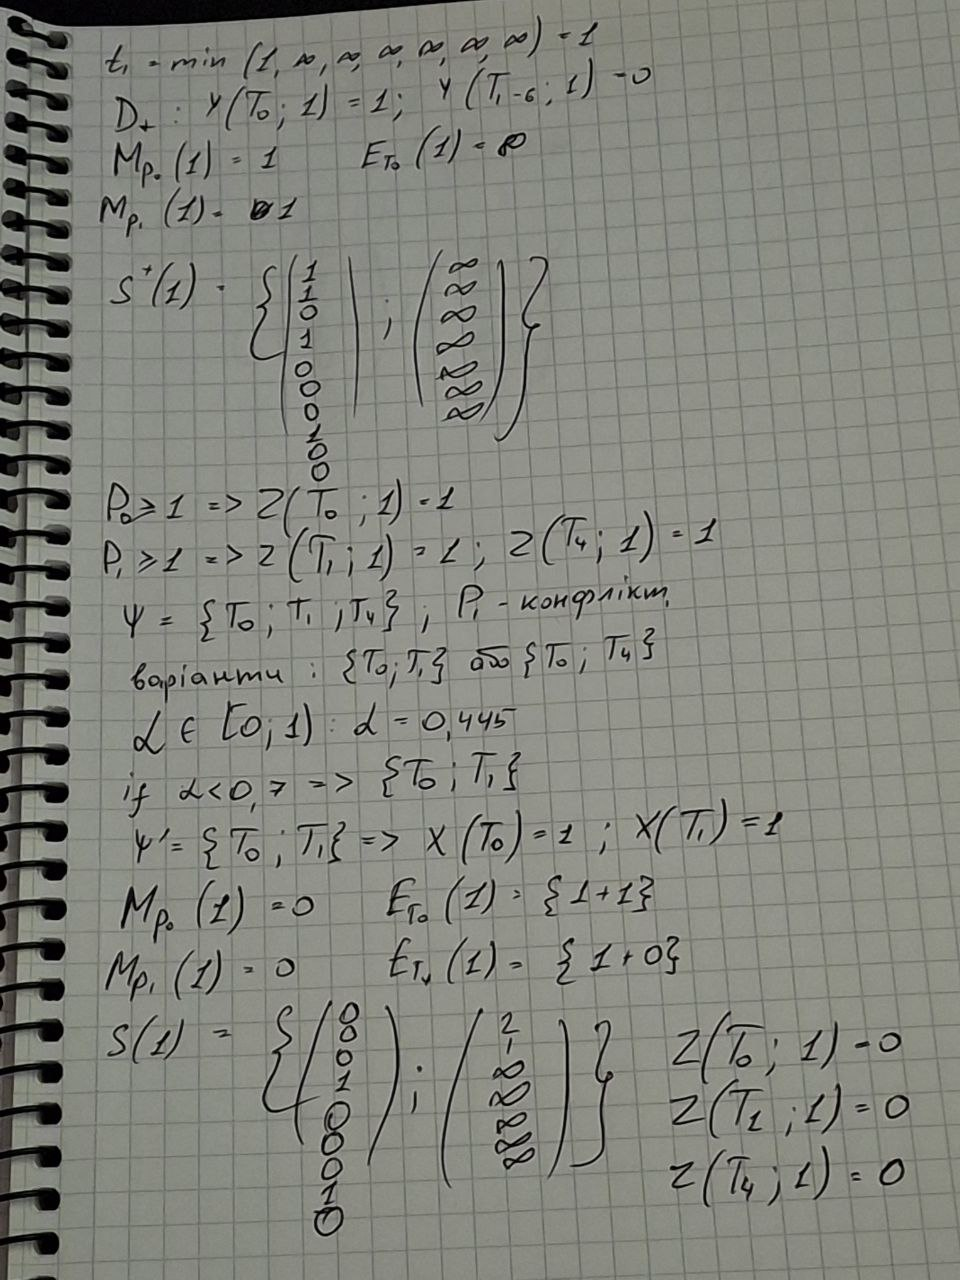 t₁ = min (1, ∞, ∞, ∞, ∞, ∞, ∞) = 1
D₊ : Y(T₀; 1) = 1; Y(T₁₋₆; 1) = 0
M_P₀ (1) = 1 E_T₀ (1) = ∞
M_P₁ (1) = 1
S⁺(1) = { ( 1 1 0 1 0 0 0 1 0 0 ) ; ( ∞ ∞ ∞ ∞ ∞ ∞ ∞ ) }
P₀ ≥ 1 => Z(T₀ ; 1) = 1
P₁ ≥ 1 => Z(T₁ ; 1) = 1 ; Z(T₄ ; 1) = 1
Ψ = {T₀ ; T₁ ; T₄} ; P₁ - конфлікт,
варіанти : {T₀; T₁} або {T₀ ; T₄}
α ∈ [0; 1) : α = 0,445
if α < 0,7 => {T₀ ; T₁}
Ψ' = {T₀ ; T₁} => X(T₀) = 1 ; X(T₁) = 1
M_P₀ (1) = 0 E_T₀ (1) = {1+1}
M_P₁ (1) = 0 (1) = {1+0}
S(1) = { ( 0 0 0 1 0 0 0 1 0 ) ; ( 2 1 ∞ ∞ ∞ ∞ ∞ ) } Z(T₀ ; 1) = 0
Z(T₁ ; 1) = 0
Z(T₄ ; 1) = 0